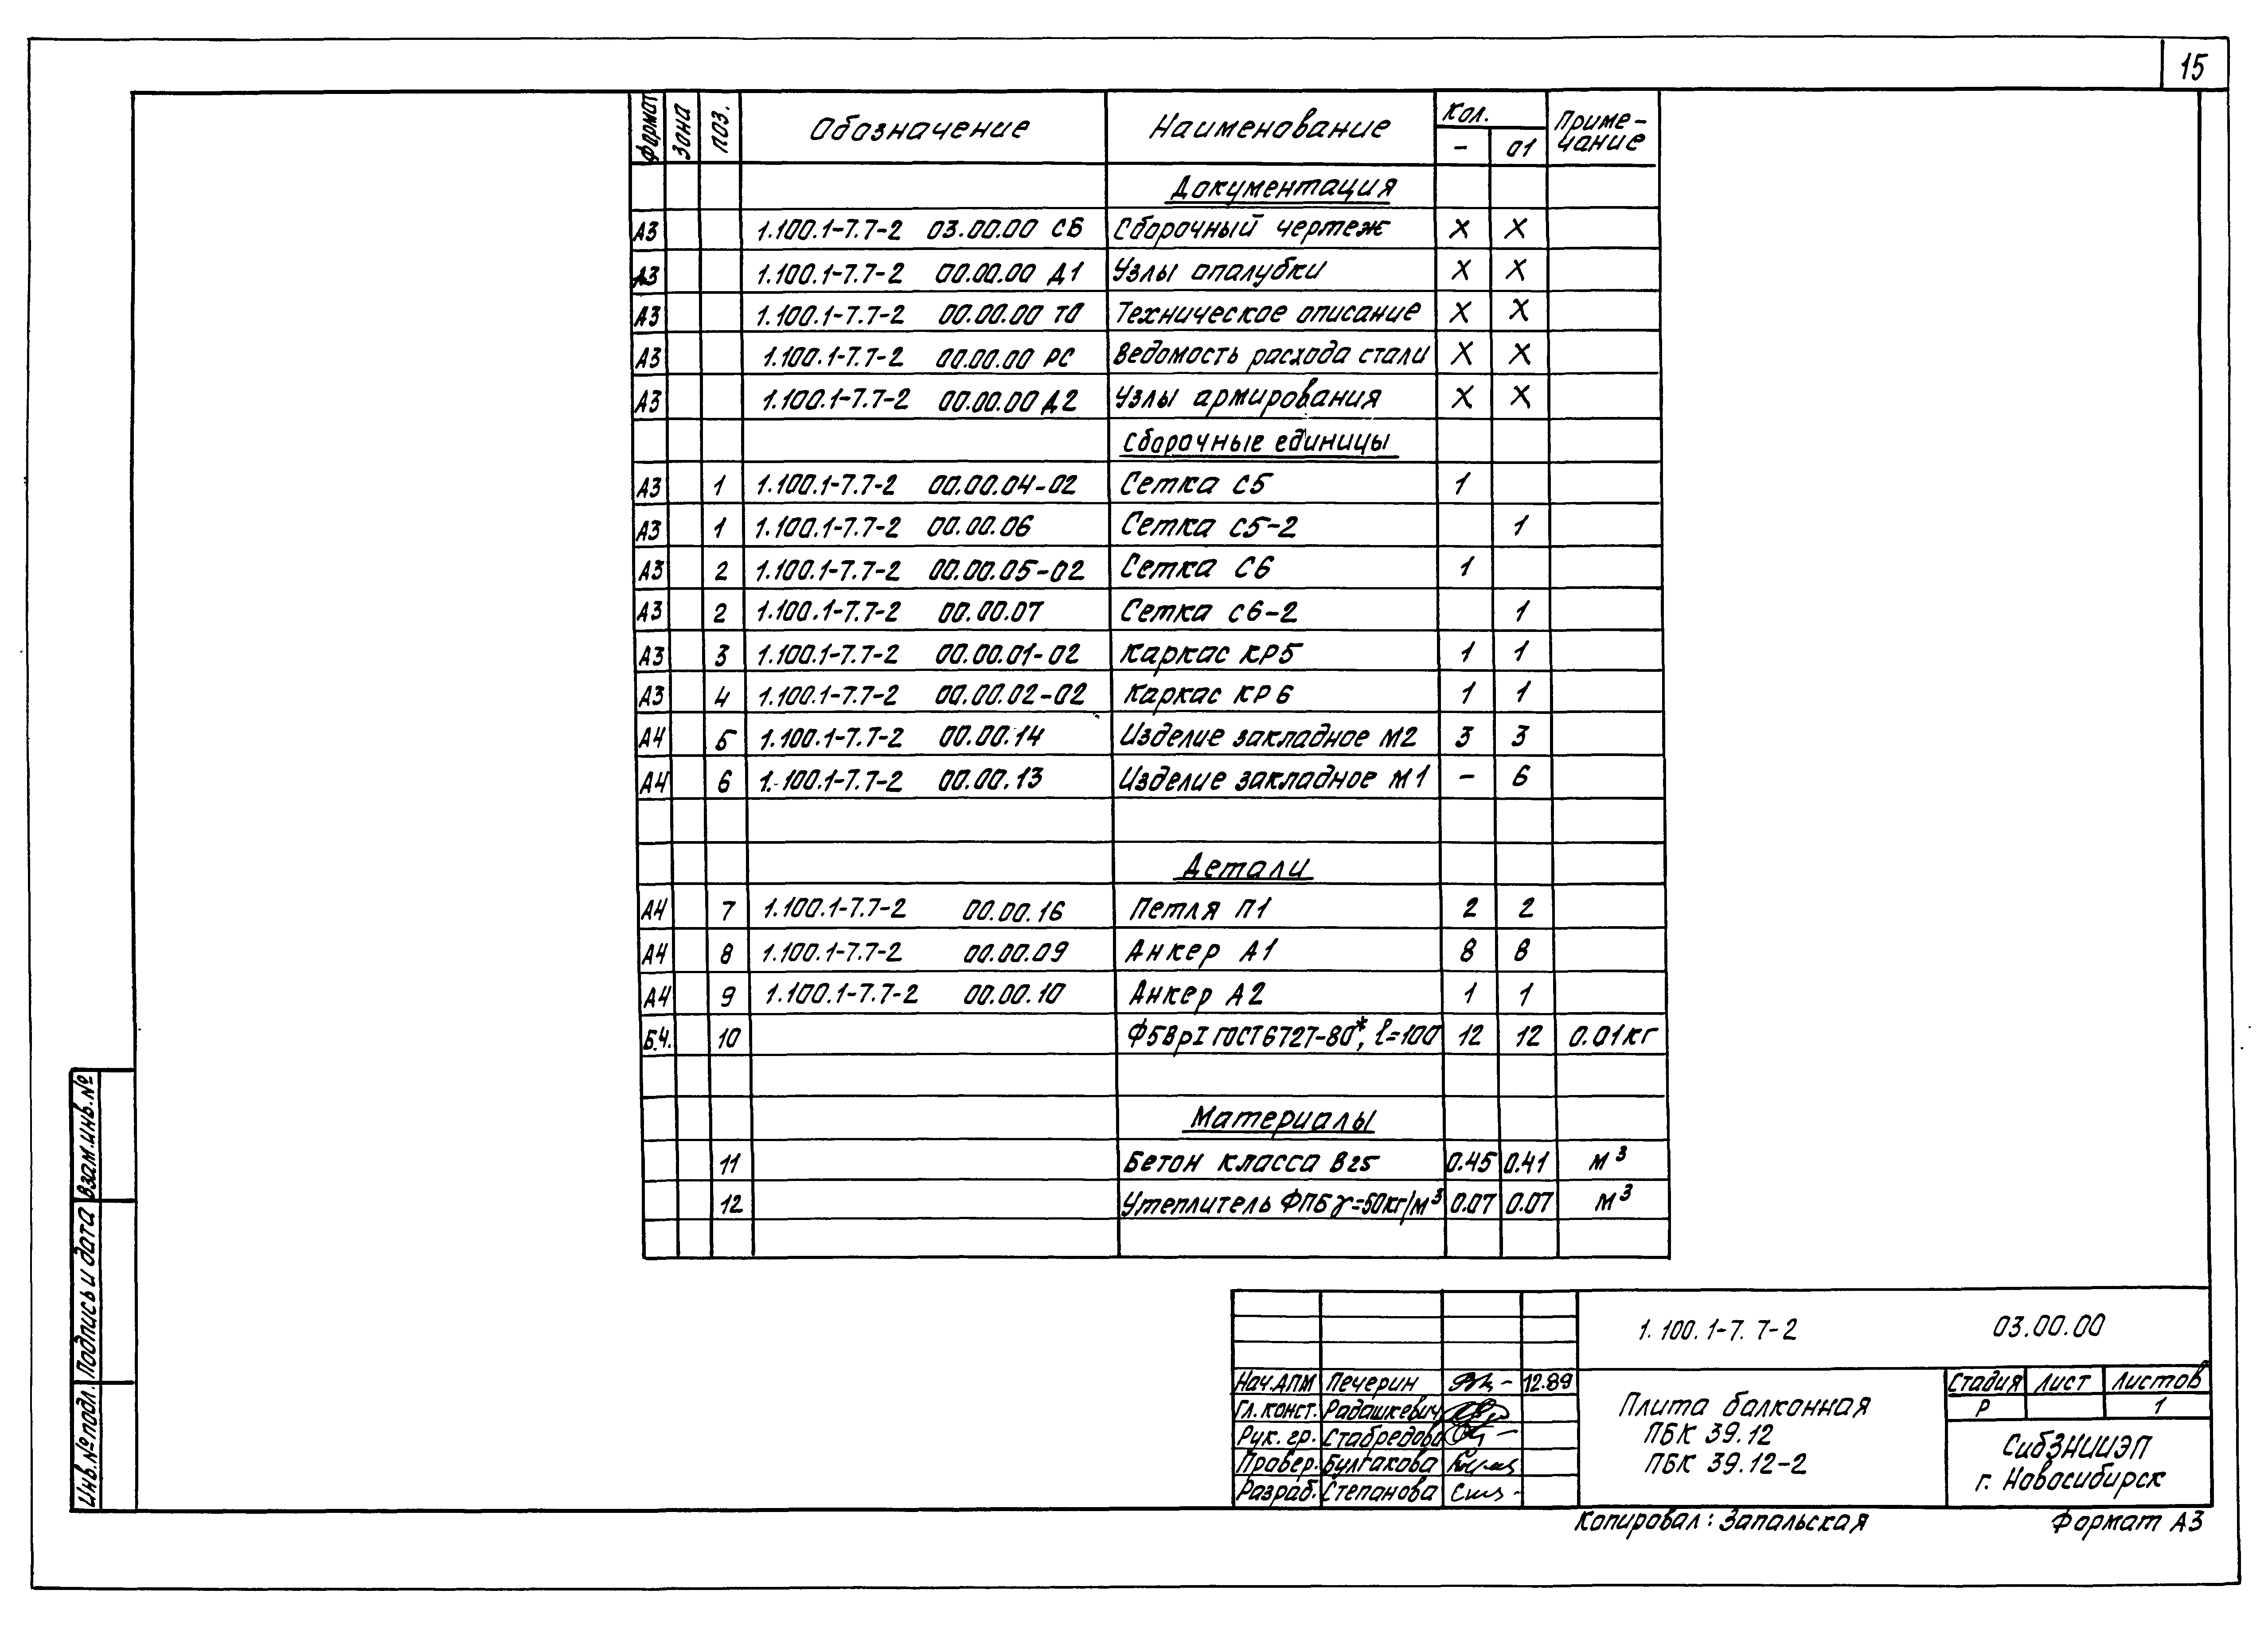 15
Формат Зона Поз. Обозначение Наименование Кол. Приме-
чание
- 01
Документация
А3 1.100.1-7.7-2 03.00.00 СБ Сборочный чертеж X X
А3 1.100.1-7.7-2 00.00.00 Д1 Узлы опалубки X X
А3 1.100.1-7.7-2 00.00.00 ТО Техническое описание X X
А3 1.100.1-7.7-2 00.00.00 РС Ведомость расхода стали X X
А3 1.100.1-7.7-2 00.00.00 Д2 Узлы армирования X X
Сборочные единицы
А3 1 1.100.1-7.7-2 00.00.04-02 Сетка С5 1
А3 1 1.100.1-7.7-2 00.00.06 Сетка С5-2 1
А3 2 1.100.1-7.7-2 00.00.05-02 Сетка С6 1
А3 2 1.100.1-7.7-2 00.00.07 Сетка С6-2 1
А3 3 1.100.1-7.7-2 00.00.01-02 Каркас КР5 1 1
А3 4 1.100.1-7.7-2 00.00.02-02 Каркас КР6 1 1
А4 5 1.100.1-7.7-2 00.00.14 Изделие закладное М2 3 3
А4 6 1.100.1-7.7-2 00.00.13 Изделие закладное М1 - 6
Детали
А4 7 1.100.1-7.7-2 00.00.16 Петля П1 2 2
А4 8 1.100.1-7.7-2 00.00.09 Анкер А1 8 8
А4 9 1.100.1-7.7-2 00.00.10 Анкер А2 1 1
Б.Ч. 10 Ф5ВрI ГОСТ 6727-80*, l=100 12 12 0.01кг
Материалы
11 Бетон класса В25 0.45 0.41 м³
12 Утеплитель ФПБ γ=50кг/м³ 0.07 0.07 м³
Взам.инв.№
Подпись и дата
Инв.№ подл.
1.100.1-7.7-2 03.00.00
Нач.АПМ Печерин 12.89
Гл. конст. Радашкевич
Рук. гр. Стабредова
Провер. Булгакова
Разраб. Степанова
Плита балконная
ПБК 39.12
ПБК 39.12-2
Стадия Лист Листов
Р 1
СибЗНИИЭП
г. Новосибирск
Копировал: Запальская Формат А3